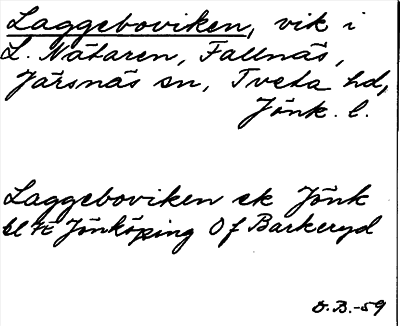 Laggeboviken, vik i
L. Nätaren, Fallnäs,
Järsnäs sn, Tveta hd,
Jönk. l.
Laggeboviken ek Jönk
bl Jönköping Of Barkeryd
D.B.-59